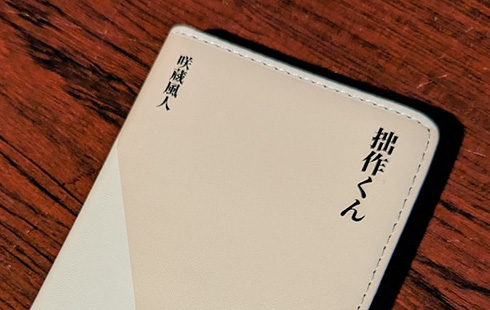 拙作くん
咲蔵風人